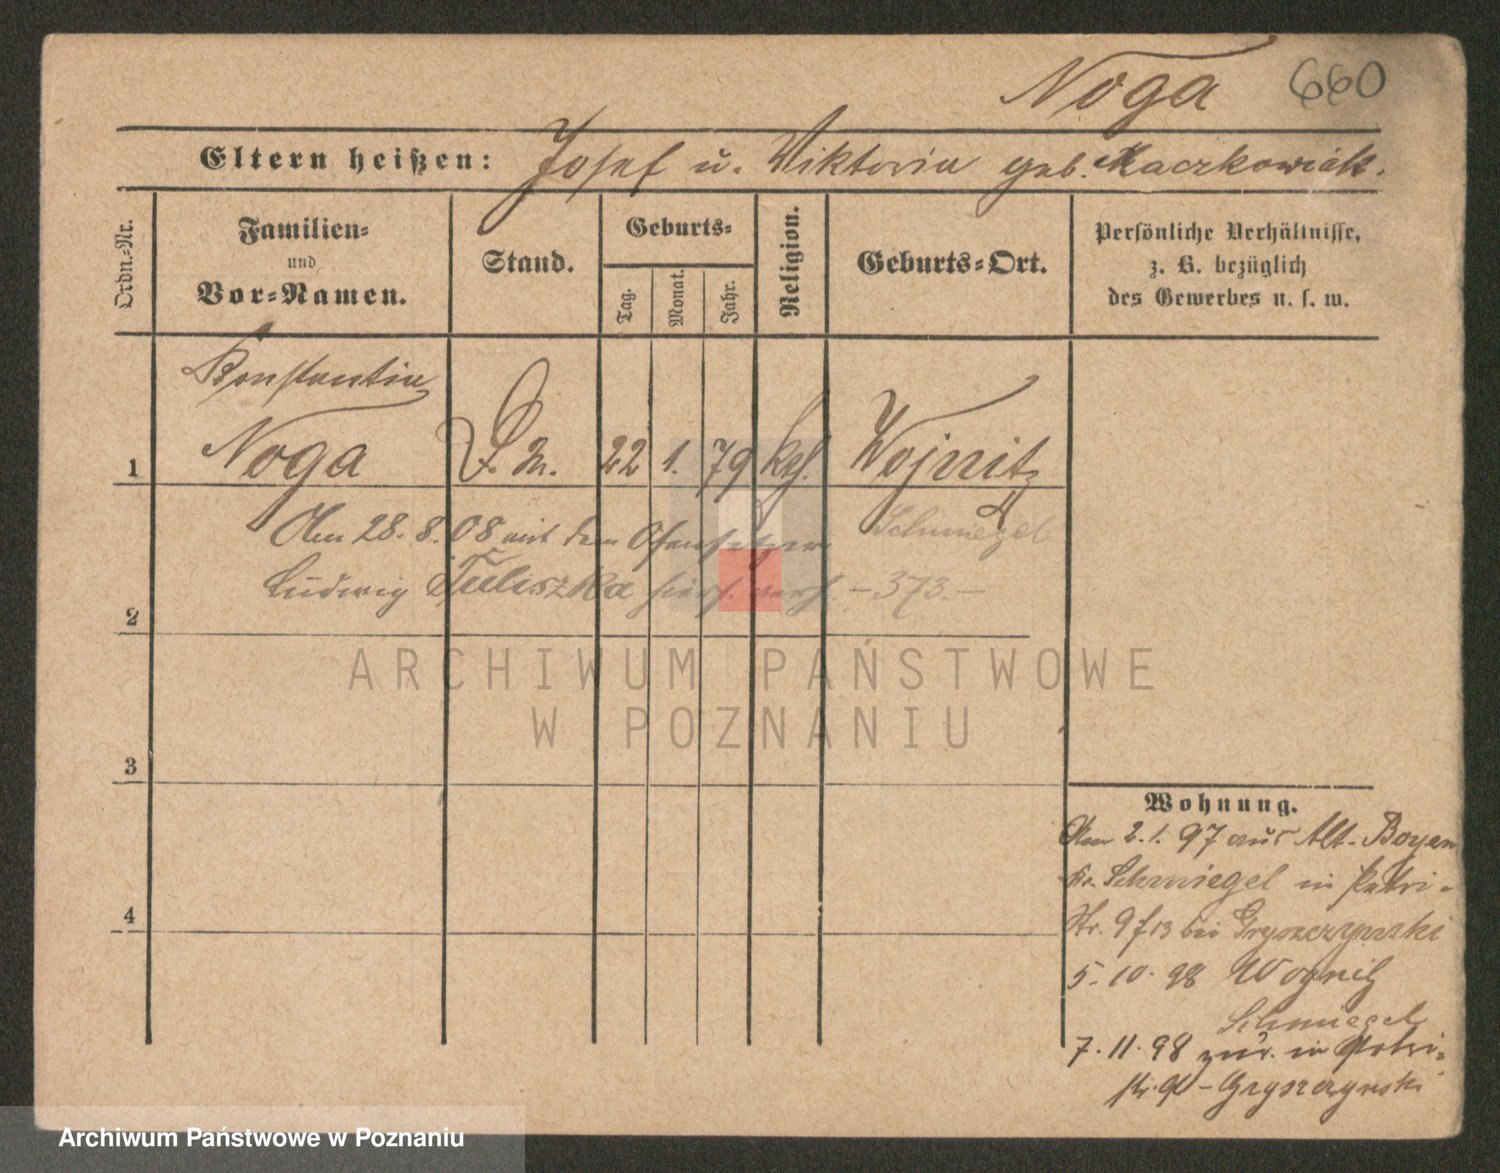 Noga 660
Eltern heißen: Josef u. Viktoria geb. Kaczkowiak.
Ordn.-Nr.
Familien-
und
Vor-Namen.
Stand.
Geburts-
Tag.
Monat.
Jahr.
Religion.
Geburts-Ort.
Persönliche Verhältnisse,
z. B. bezüglich
des Gewerbes u. s. w.
Konstantia
1 Noga D. M. 22 1. 79 kath. Wojnitz
Schmiegel
Am 28. 8. 08 mit dem Ofensetzer
2 Ludwig Tuliszka hier verh. - 373. -
3
4
Wohnung.
Am 2. 1. 97 aus Alt-Boyen
Kr. Schmiegel in Petri-
Str. 9 f 13 bei Gryszczynski
5. 10. 98 Woynitz
Schmiegel
7. 11. 98 zur. in Petri-
str. 9 - Gryszczynski
ARCHIWUM PAŃSTWOWE
W POZNANIU
Archiwum Państwowe w Poznaniu